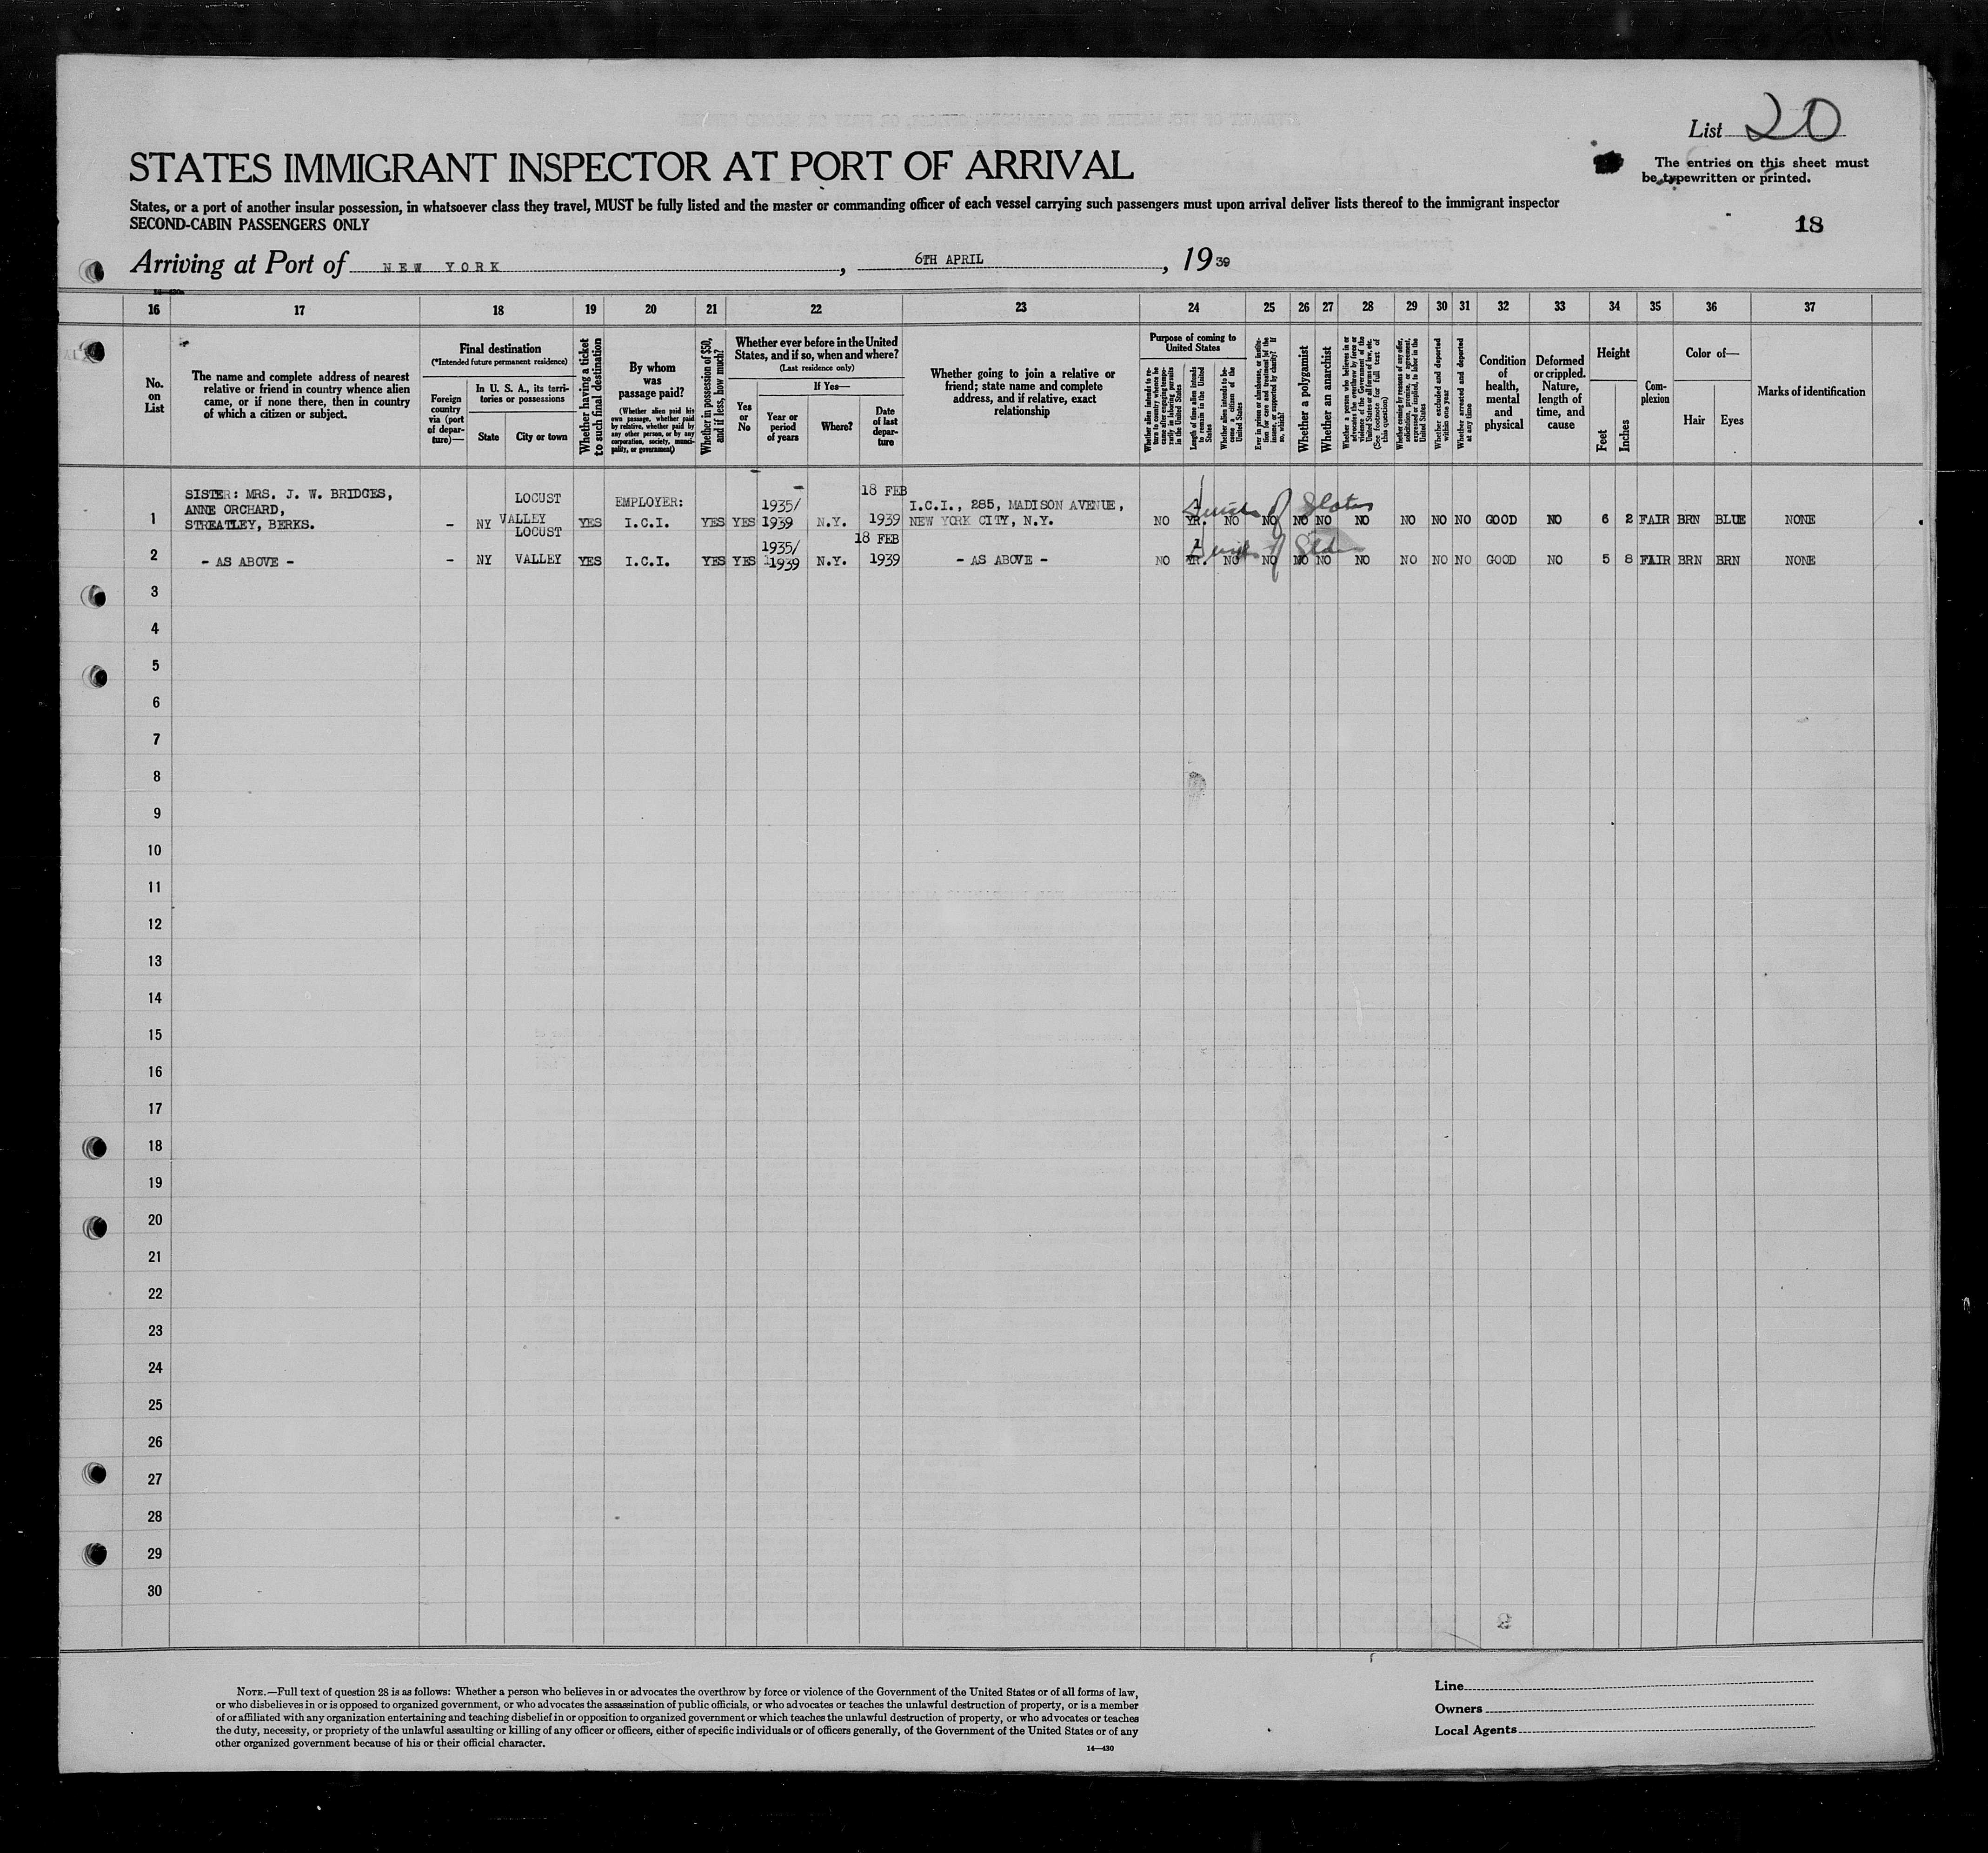 List 20
The entries on this sheet must
be typewritten or printed.
STATES IMMIGRANT INSPECTOR AT PORT OF ARRIVAL
States, or a port of another insular possession, in whatsoever class they travel, MUST be fully listed and the master or commanding officer of each vessel carrying such passengers must upon arrival deliver lists thereof to the immigrant inspector
SECOND-CABIN PASSENGERS ONLY
18
Arriving at Port of NEW YORK, 6TH APRIL, 1939
16 17 18 19 20 21 22 23 24 25 26 27 28 29 30 31 32 33 34 35 36 37
No.
on
List
The name and complete address of nearest
relative or friend in country whence alien
came, or if none there, then in country
of which a citizen or subject.
Final destination
(*Intended future permanent residence)
Foreign
country
via (port
of depar-
ture)—
In U. S. A., its terri-
tories or possessions
State
City or town
Whether having a ticket
to such final destination
By whom
was
passage paid?
(Whether alien paid his
own passage, whether paid
by relative, whether paid by
any other person, or by any
corporation, society, munici-
pality, or government)
Whether in possession of $50,
and if less, how much?
Whether ever before in the United
States, and if so, when and where?
(Last residence only)
Yes
or
No
If Yes—
Year or
period
of years
Where?
Date
of last
depar-
ture
Whether going to join a relative or
friend; state name and complete
address, and if relative, exact
relationship
Purpose of coming to
United States
Whether alien intends to re-
turn to country whence he
came after engaging tempo-
rarily in laboring pursuits
in the United States
Length of time alien intends
to remain in the United
States
Whether alien intends to be-
come a citizen of the
United States
Ever in prison or almshouse, or institu-
tion for care and treatment of the
insane, or supported by charity? If
so, which?
Whether a polygamist
Whether an anarchist
Whether a person who believes in or
advocates the overthrow by force or
violence of the Government of the
United States or all forms of law, etc.
(See footnote for full text of
this question)
Whether coming by reasons of any offer,
solicitation, promise, or agreement,
expressed or implied, to labor in the
United States
Whether excluded and deported
within one year
Whether arrested and deported
at any time
Condition
of
health,
mental
and
physical
Deformed
or crippled.
Nature,
length of
time, and
cause
Height
Feet
Inches
Com-
plexion
Color of—
Hair
Eyes
Marks of identification
1 SISTER: MRS. J. W. BRIDGES,
ANNE ORCHARD,
STREATLEY, BERKS.
– NY LOCUST
VALLEY
YES EMPLOYER:
I.C.I. YES YES 1935/
1939 N.Y. 18 FEB
1939
I.C.I., 285, MADISON AVENUE,
NEW YORK CITY, N.Y.
NO 1
YR. NO NO NO NO NO NO NO NO GOOD NO 6 2 FAIR BRN BLUE NONE
2 – AS ABOVE – – NY LOCUST
VALLEY YES I.C.I. YES YES 1935/
1939 N.Y. 18 FEB
1939 – AS ABOVE – NO 1
YR. NO NO NO NO NO NO NO NO GOOD NO 5 8 FAIR BRN BRN NONE
3
4
5
6
7
8
9
10
11
12
13
14
15
16
17
18
19
20
21
22
23
24
25
26
27
28
29
30
NOTE.—Full text of question 28 is as follows: Whether a person who believes in or advocates the overthrow by force or violence of the Government of the United States or of all forms of law,
or who disbelieves in or is opposed to organized government, or who advocates the assassination of public officials, or who advocates or teaches the unlawful destruction of property, or is a member
of or affiliated with any organization entertaining and teaching disbelief in or opposition to organized government or which teaches the unlawful destruction of property, or who advocates or teaches
the duty, necessity, or propriety of the unlawful assaulting or killing of any officer or officers, either of specific individuals or of officers generally, of the Government of the United States or of any
other organized government because of his or their official character.
14—430
Line
Owners
Local Agents